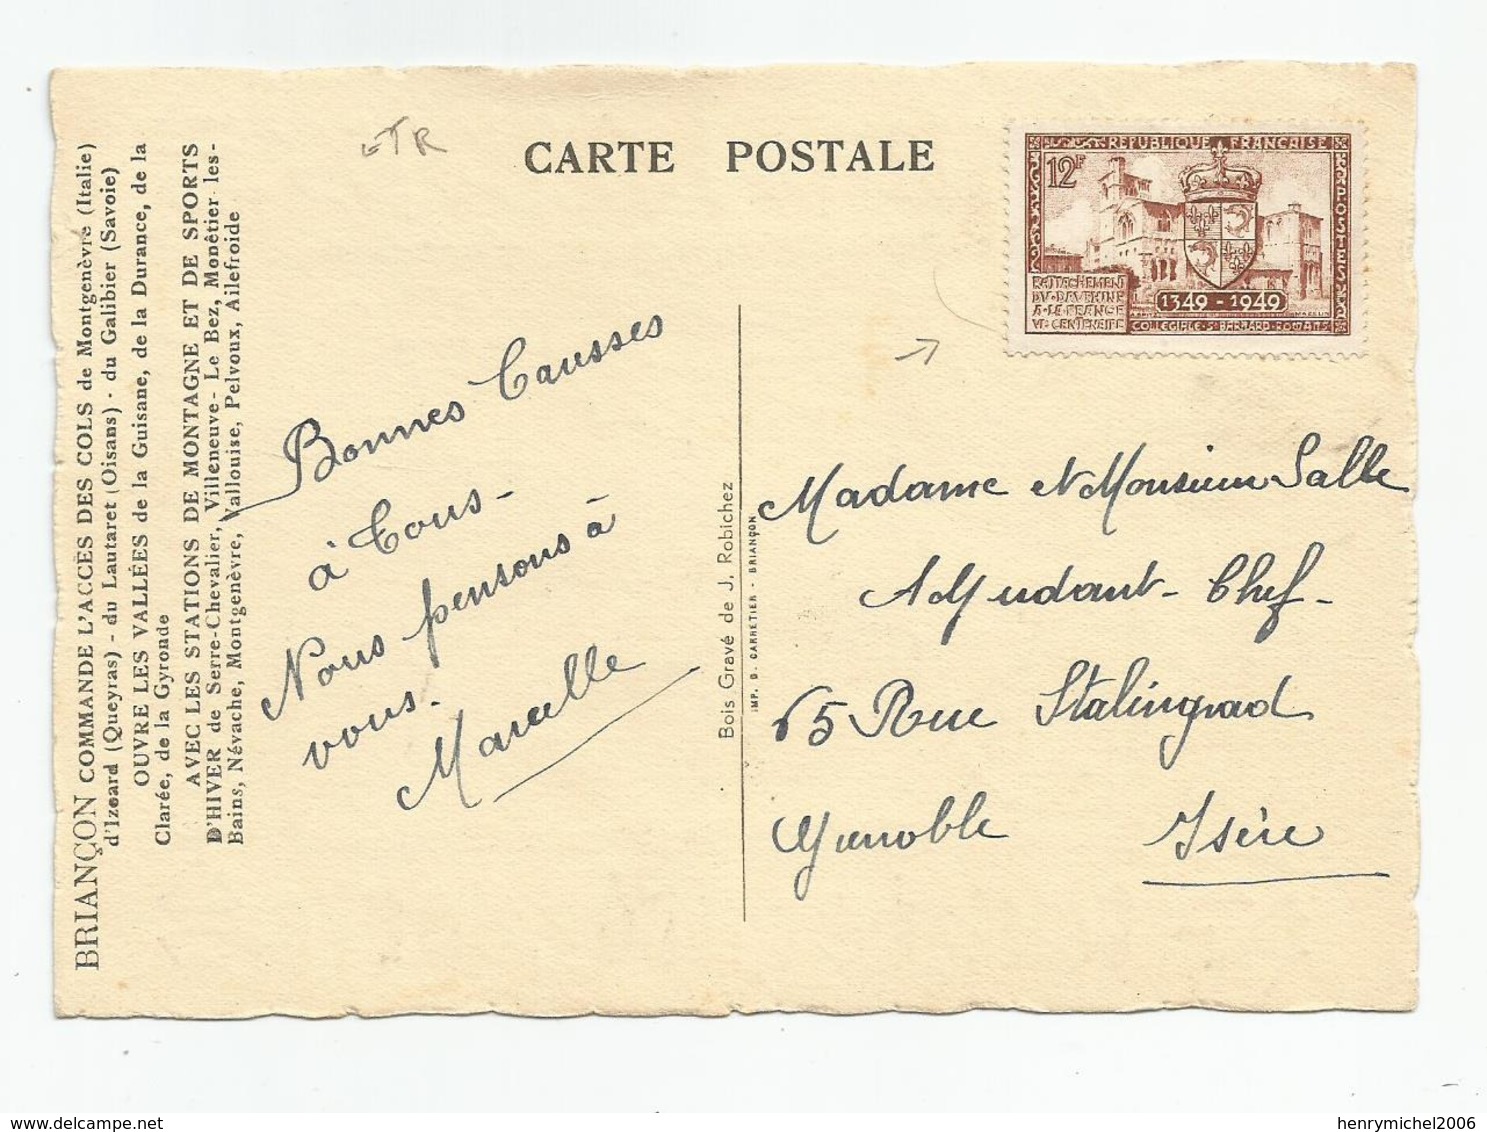 BRIANÇON COMMANDE L'ACCÈS DES COLS de Montgenèvre (Italie)
d'Izoard (Queyras) - du Lautaret (Oisans) - du Galibier (Savoie)
OUVRE LES VALLÉES de la Guisane, de la Durance, de la
Clarée, de la Gyronde
AVEC LES STATIONS DE MONTAGNE ET DE SPORTS
D'HIVER de Serre-Chevalier, Villeneuve- Le Bez, Monêtier-les-
Bains, Névache, Montgenèvre, Vallouise, Pelvoux, Ailefroide
TR
CARTE POSTALE
REPUBLIQUE FRANCAISE
12F
POSTES
RATTACHEMENT
DU·DAUPHINE
A·LA·FRANCE
VIe CENTENAIRE
1349-1949
COLLEGIALE·St BARNARD·ROMANS
Bonnes Causses
à tous-
Nous pensons à
vous.
Marcelle
Bois Gravé de J. Robichez
IMP. G. CARRÉTIER - BRIANÇON
Madame et Monsieur Salle
Adjudant-Chef-
65 Rue Stalingrad
Grenoble Isère
henrymichel2006